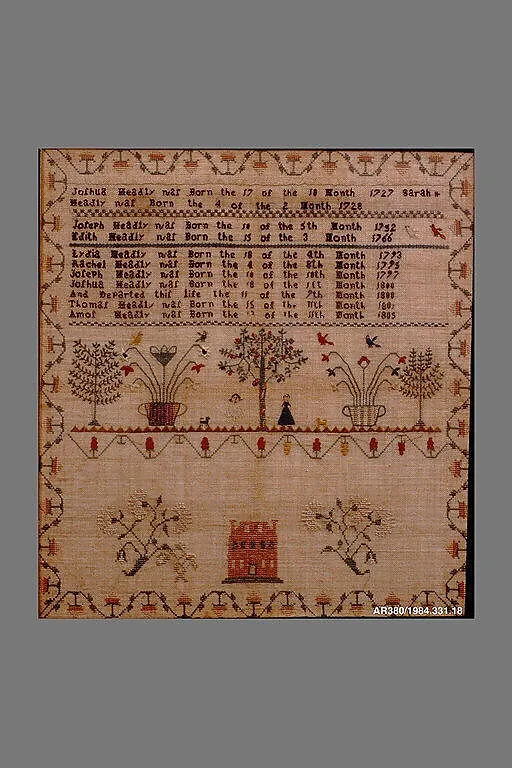 Joſhua Headly waſ Born the 17 of the 10 Month 1727 Sarah
Headly waſ Born the 4 of the 2 Month 1728
Joſeph Headly waſ Born the 10 of the 5th Month 1752
Edith Headly waſ Born the 15 of the 3 Month 1766
Lydia Headly waſ Born the 18 of the 4th Month 1793
Rachel Headly waſ Born the 4 of the 8th Month 1795
Joſeph Headly waſ Born the 10 of the 10th Month 1797
Joſhua Headly waſ Born the 18 of the Month 1800
And Departed thiſ life the 11 of the 7th Month 1800
Thomaſ Headly waſ Born the 15 of the 11th Month
Amoſ Headly waſ Born the of the 11th Month 1805
AR380/1984.331.18